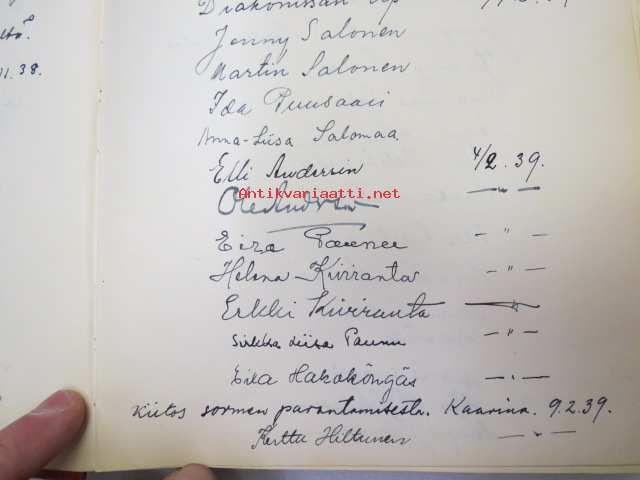 ltö.
11.38.
Jenny Salonen
Martin Salonen
Ida Puusaari
Anna-Liisa Salomaa
Elli Andersin 4/2.39.
Antikvariaatti.net
— " —
Eira — " —
Helena Kiviranta — " —
Erkki Kiviranta — " —
Sirkka Liisa Paunu — " —
Eila Hakoköngäs — " —
Kiitos sormen parantamisesta. Kaarina. 9.2.39.
Kerttu Hiltunen — " —